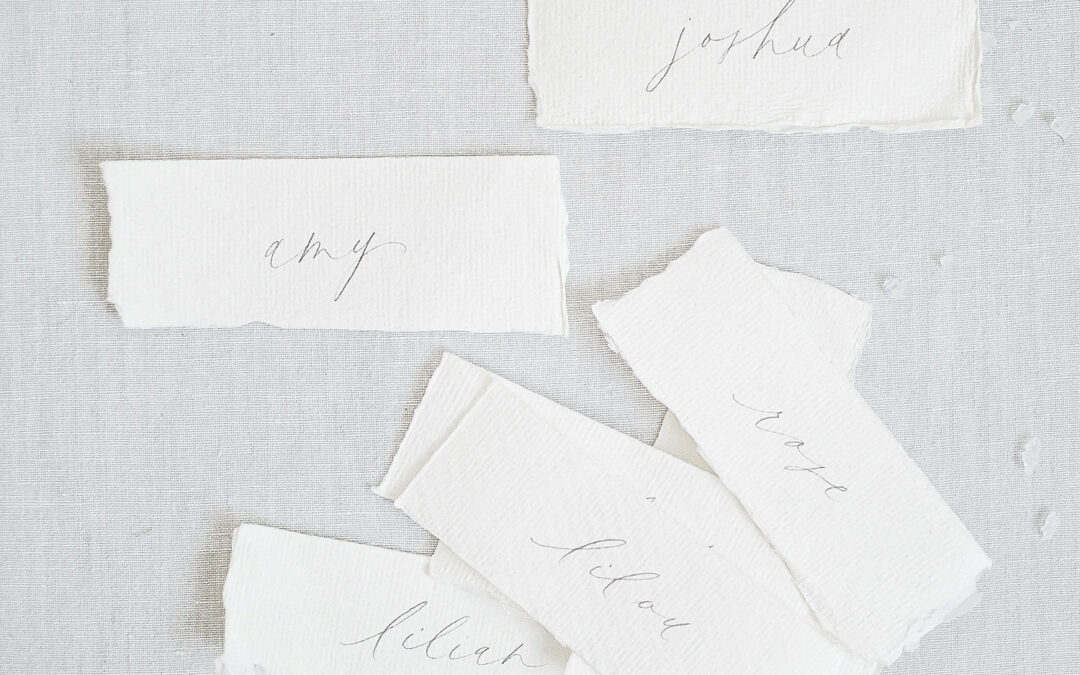 joshua
amy
rose
lilou
lilian